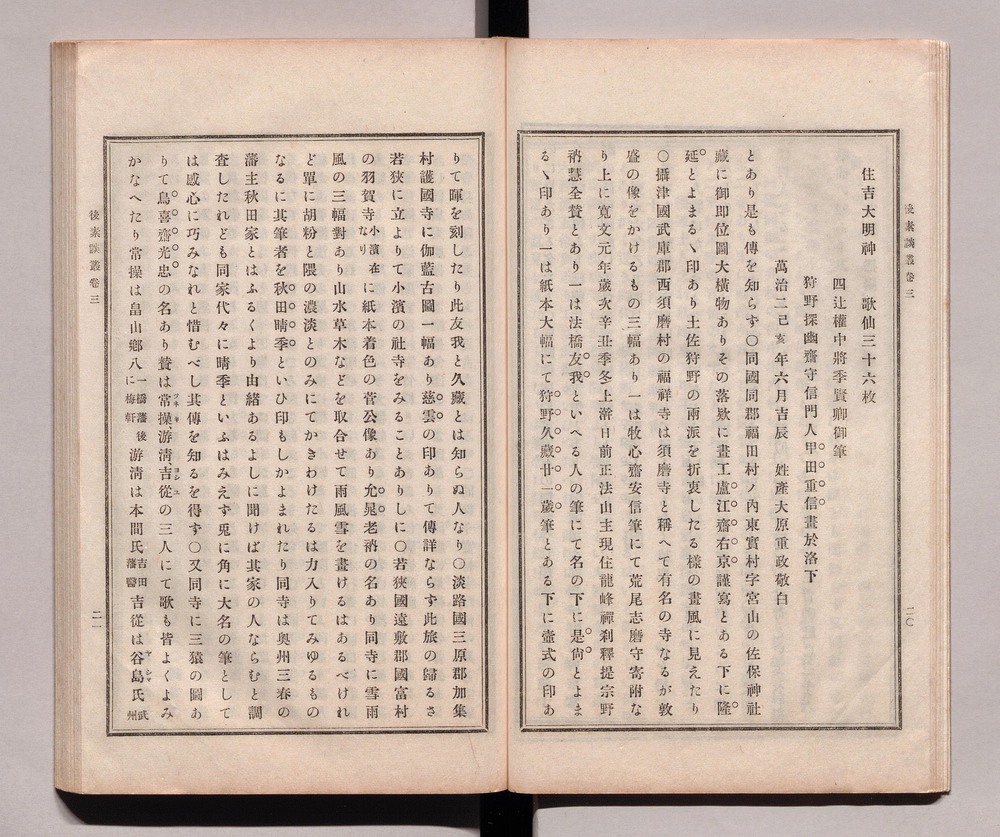 後素談叢卷三
住吉大明神　　歌仙三十六枚
四辻權中將季賢卿御筆
狩野探幽齋守信門人甲田重信畫於洛下
萬治二己亥年六月吉辰　姓產大原重政敬白
とあり是も傳を知らず〇同國同郡福田村ノ內東實村字宮山の佐保神社
藏に御卽位圖大橫物ありその落欵に畫工盧江齋右京謹寫とある下に隆
延とよまるヽ印あり土佐狩野の兩派を折衷したる樣の畫風に見えたり
〇攝津國武庫郡西須磨村の福祥寺は須磨寺と稱へて有名の寺なるが敦
盛の像をかけるもの三幅あり一は牧心齋安信筆にて荒尾志磨守寄附な
り上に寬文元年歲次辛丑季冬上澣日前正法山主現住龍峰禪刹釋提宗野
衲慧全贊とあり一は法橋友我といへる人の筆にて名の下に是尙とよま
るヽ印あり一は紙本大幅にて狩野久藏廿一歲筆とある下に壺式の印あ
二〇
りて暉を刻したり此友我と久藏とは知らぬ人なり〇淡路國三原郡加集
村護國寺に伽藍古圖一幅あり慈雲の印ありて傳詳ならず此旅の歸るさ
若狹に立よりて小濱の社寺をみることありしに〇若狹國遠敷郡國富村
の羽賀寺小濱在なりに紙本着色の菅公像あり允晁老衲の名あり同寺に雪雨
風の三幅對あり山水草木などを取合せて雨風雪を畫けるはあるべけれ
ど單に胡粉と隈の濃淡とのみにてかきわけたるは力入りてみゆるもの
なるに其筆者を秋田晴季といひ印もしかよまれたり同寺は奧州三春の
藩主秋田家とはふるくより由緖あるよしに聞けば其家の人ならむと調
査したれども同家代々に晴季といふはみえず兎に角に大名の筆として
は感心に巧みなれと惜むべし其傳を知るを得ず〇又同寺に三猿の圖あ
りて鳥喜齋光忠の名あり贊は常操、游淸吉從の三人にて歌も皆よくよみ
かなへたり常操は畠山鄕八一橋藩後に梅軒游淸は本間氏吉田藩醫吉從は谷島氏武州
後素談叢卷三
二一